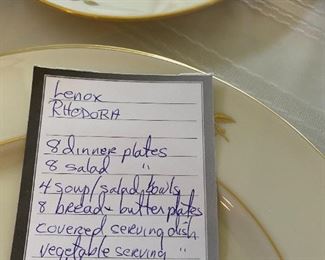 Lenox
RHODORA
8 dinner plates
8 salad "
4 soup/salad bowls
8 bread + butter plates
covered serving dish
vegetable serving "